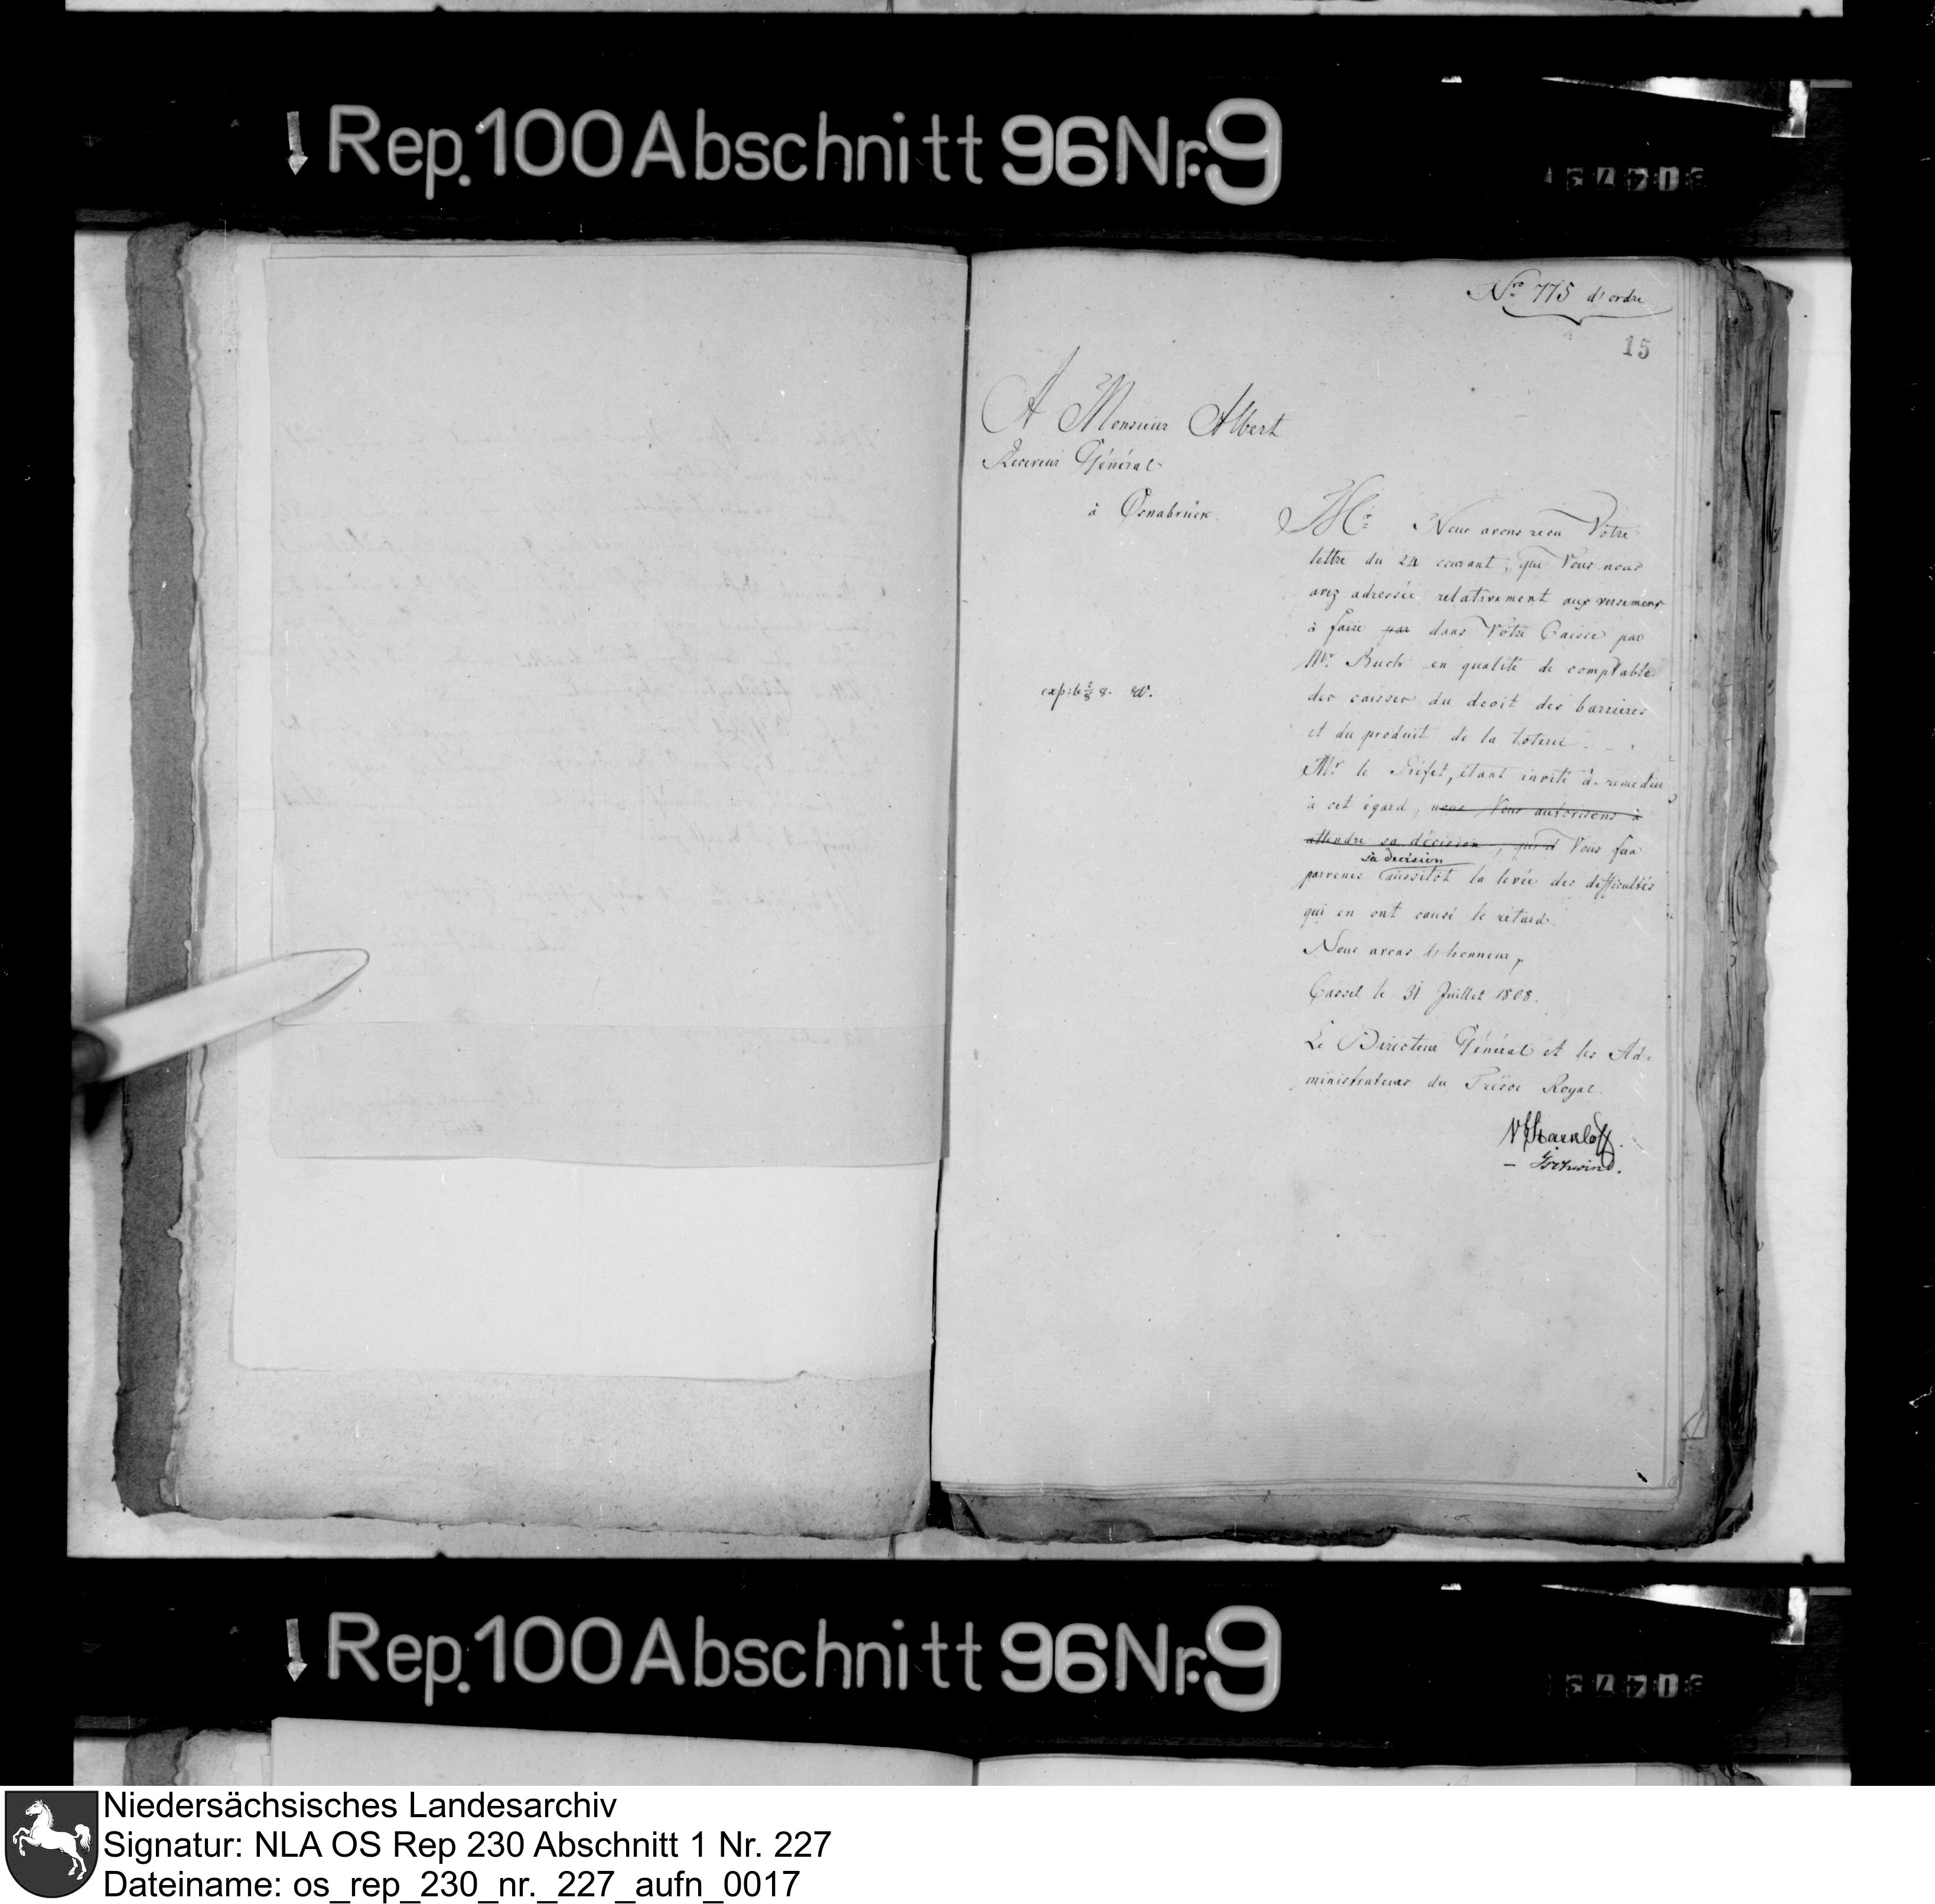 Rep. 100 Abschnitt 96 Nr. 9
Nro 775 d'ordre
15
A Monsieur Albert
Receveur Général
à Osnabrück.
Mr. Nous avons reçu Votre
lettre du 24 courant, que Vous nous
avez adressée relativement aux versemens
à faire par dans Votre Caisse par
Mr. Buch en qualité de comptable
des caisses du droit des barrières
et du produit de la loterie.
Mr. le Préfet, étant invité à remedier
à cet égard, nous Vous autorisons à
attendre sa décision, qu'il Vous fera
sa decision
parvenir aussitôt la levée des difficultés
qui en ont causé le retard.
Nous avons l'honneur,
Cassel le 31 Juillet 1808.
Le Directeur Général et les Ad-
ministrateurs du Trésor Royal.
exp: le 2/8 8.
Rep. 100 Abschnitt 96 Nr. 9
Niedersächsisches Landesarchiv
Signatur: NLA OS Rep 230 Abschnitt 1 Nr. 227
Dateiname: os_rep_230_nr._227_aufn_0017